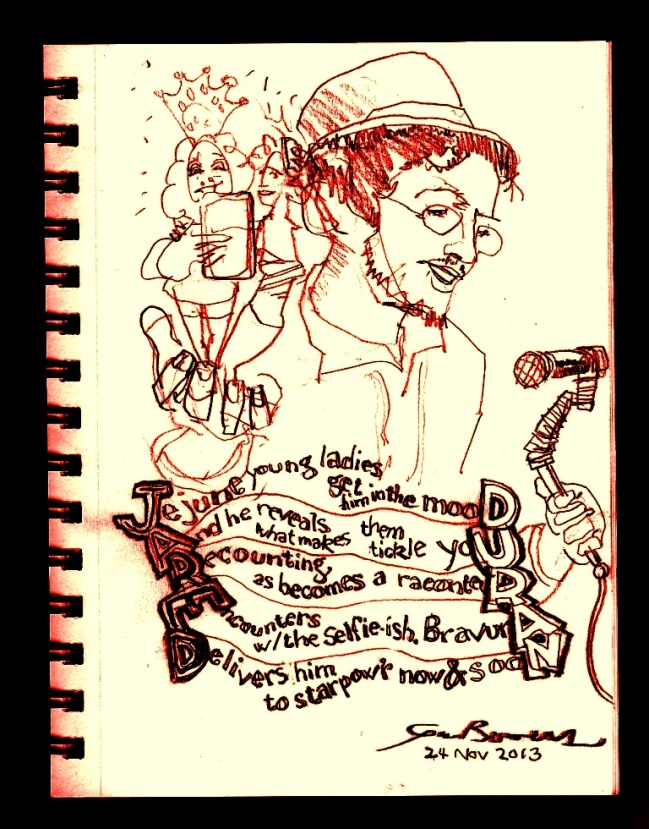 Jejune young ladies
get
him in the mooD
And he reveals
what makes them
tickle yoU
Recounting,
as becomes a raconteuR
Encounters
w/the Selfie-ish. BravurA
Delivers him
to starpow'r now & sooN
24 Nov 2013